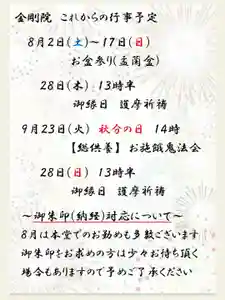 金剛院 これからの行事予定
8月2日(土)〜17日(日)
お盆参り(盂蘭盆)
28日(木) 13時半
御縁日 護摩祈祷
9月23日(火) 秋分の日 14時
【総供養】 お施餓鬼法会
28日(日) 13時半
御縁日 護摩祈祷
〜御朱印(納経)対応について〜
8月は本堂でのお勤めも多数ございます
御朱印をお求めの方は少々お待ち頂く
場合もありますので予めご了承ください